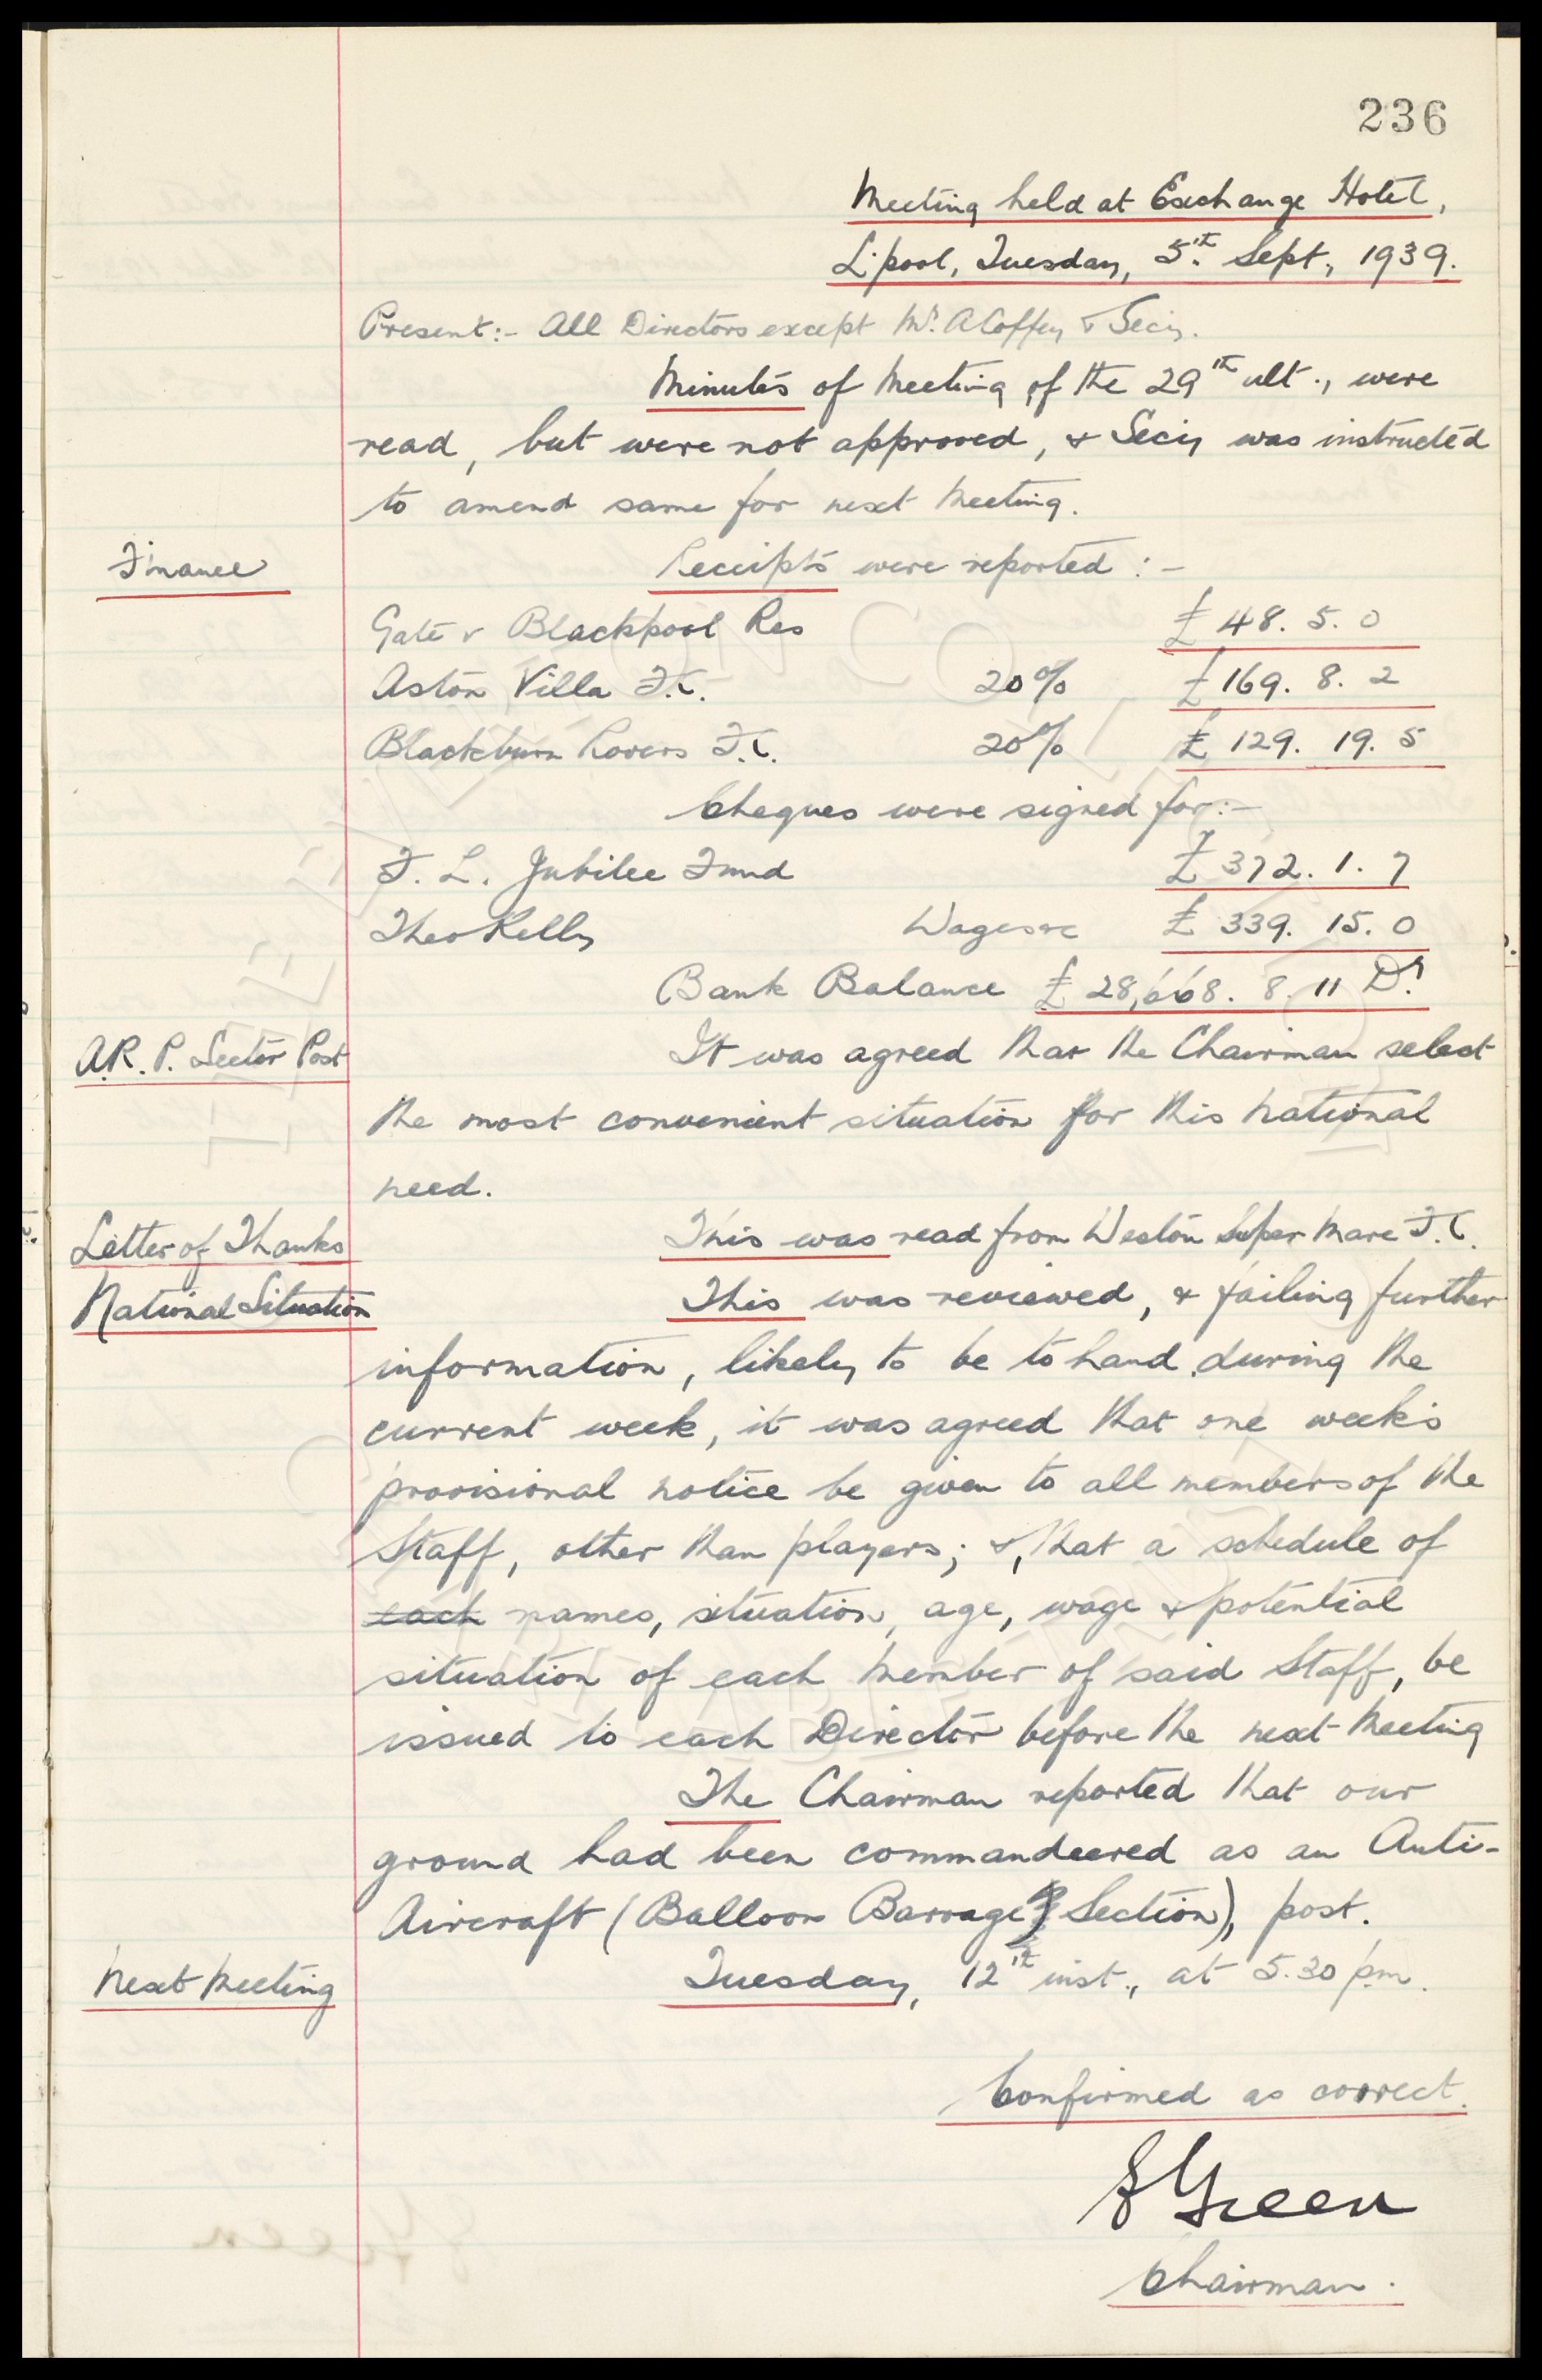 236
Meeting held at Exchange Hotel,
L'pool, Tuesday, 5th Sept., 1939.
Present:- All Directors except Mr. A Coffey & Secy.
Minutes of Meeting of the 29th ult., were
read, but were not approved, & Secy was instructed
to amend same for next Meeting.
Finance Receipts were reported :-
Gate v Blackpool Res £ 48. 5. 0
Aston Villa F.C. 20% £ 169. 8. 2
Blackburn Rovers F.C. 20% £ 129. 19. 5
Cheques were signed for:-
F. L. Jubilee Fund £ 372. 1. 7
Theo Kelly Wages &c £ 339. 15. 0
Bank Balance £ 28,668. 8. 11 Dr.
A.R.P. Sector Post It was agreed that the Chairman select
the most convenient situation for this National
need.
Letter of Thanks This was read from Weston Super Mare F.C.
National Situation This was reviewed, & failing further
information, likely to be to hand during the
current week, it was agreed that one week's
provisional notice be given to all members of the
Staff, other than players; &, that a schedule of
each names, situation, age, wage & potential
situation of each member of said Staff, be
issued to each Director before the next Meeting
The Chairman reported that our
ground had been commandeered as an Anti-
Aircraft (Balloon Barrage Section), post.
Next Meeting Tuesday, 12th inst., at 5.30 pm.
Confirmed as correct.
Green
Chairman.